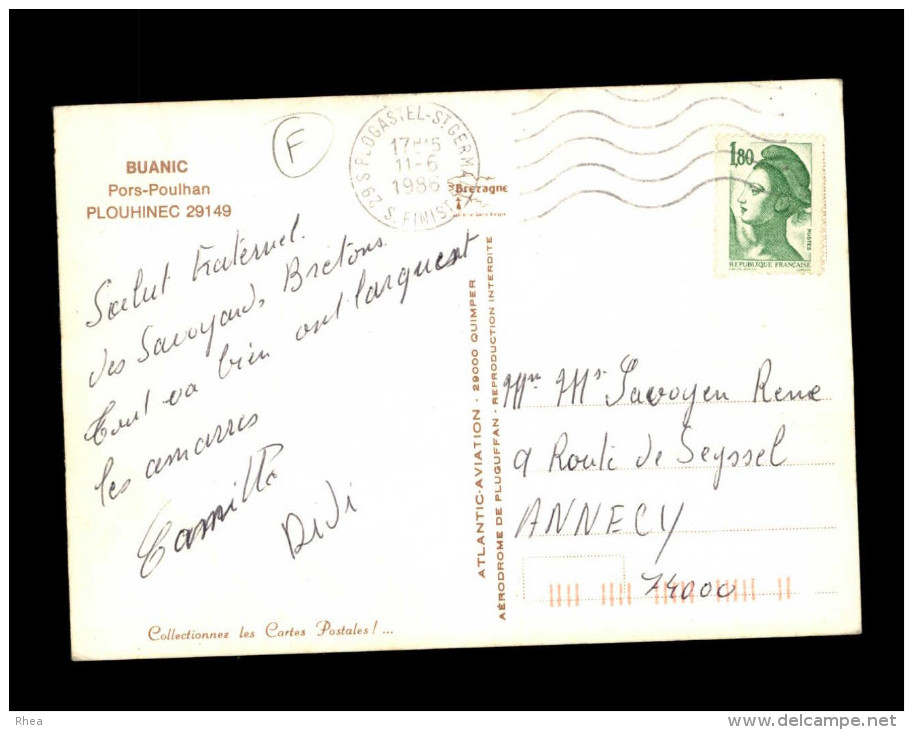 BUANIC
Pors-Poulhan
PLOUHINEC 29149
F
Salut Fraternel.
des Savoyards Bretons.
Tout va bien ont larguent
les amarres
Camille
Didi
Collectionnez les Cartes Postales ! ...
29 S. PLOGASTEL-ST GERMA
11-6
1986
S. FINIST
Bretagne
ATLANTIC-AVIATION - 29000 QUIMPER
AÉRODROME DE PLUGUFFAN - REPRODUCTION INTERDITE
1,80
POSTES
REPUBLIQUE FRANÇAISE
Mr Ms Savoyen Rene
9 Route de Seyssel
ANNECY
74000
Rhea
www.delcampe.net